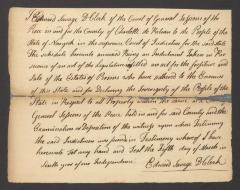 I Edward Savage D Clerk of the Court of General Sessions of the
Peace in and for the County of Charlotte do Return to the People of the
State of Newyork in the supreme Court of Judicature for the said state
The schedule hereunto annexed Being an Indictment Taken in Pur
suance of an act of the Legislature entitled an act for the forfeiture and
Sale of the Estates of Persons who have adhered to the Enemies
of this State and for Declaring the Sovereignty of the People of the
State in Respect to all Property within the same at a
General Sessions of the Peace held in and for said County and the
Examination or Deposition of the witness upon whose Testimony
the said Indictment was found in Testimony whereof I have
hereunto Set my hand and Seal the Fifth day of March in
year of our Independence
Edward Savage D Clerk